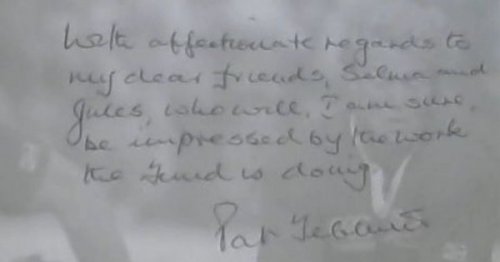 With affectionate regards to
my dear friends, Selma and
Jules, who will, I am sure,
be impressed by the work
the Fund is doing
Pat